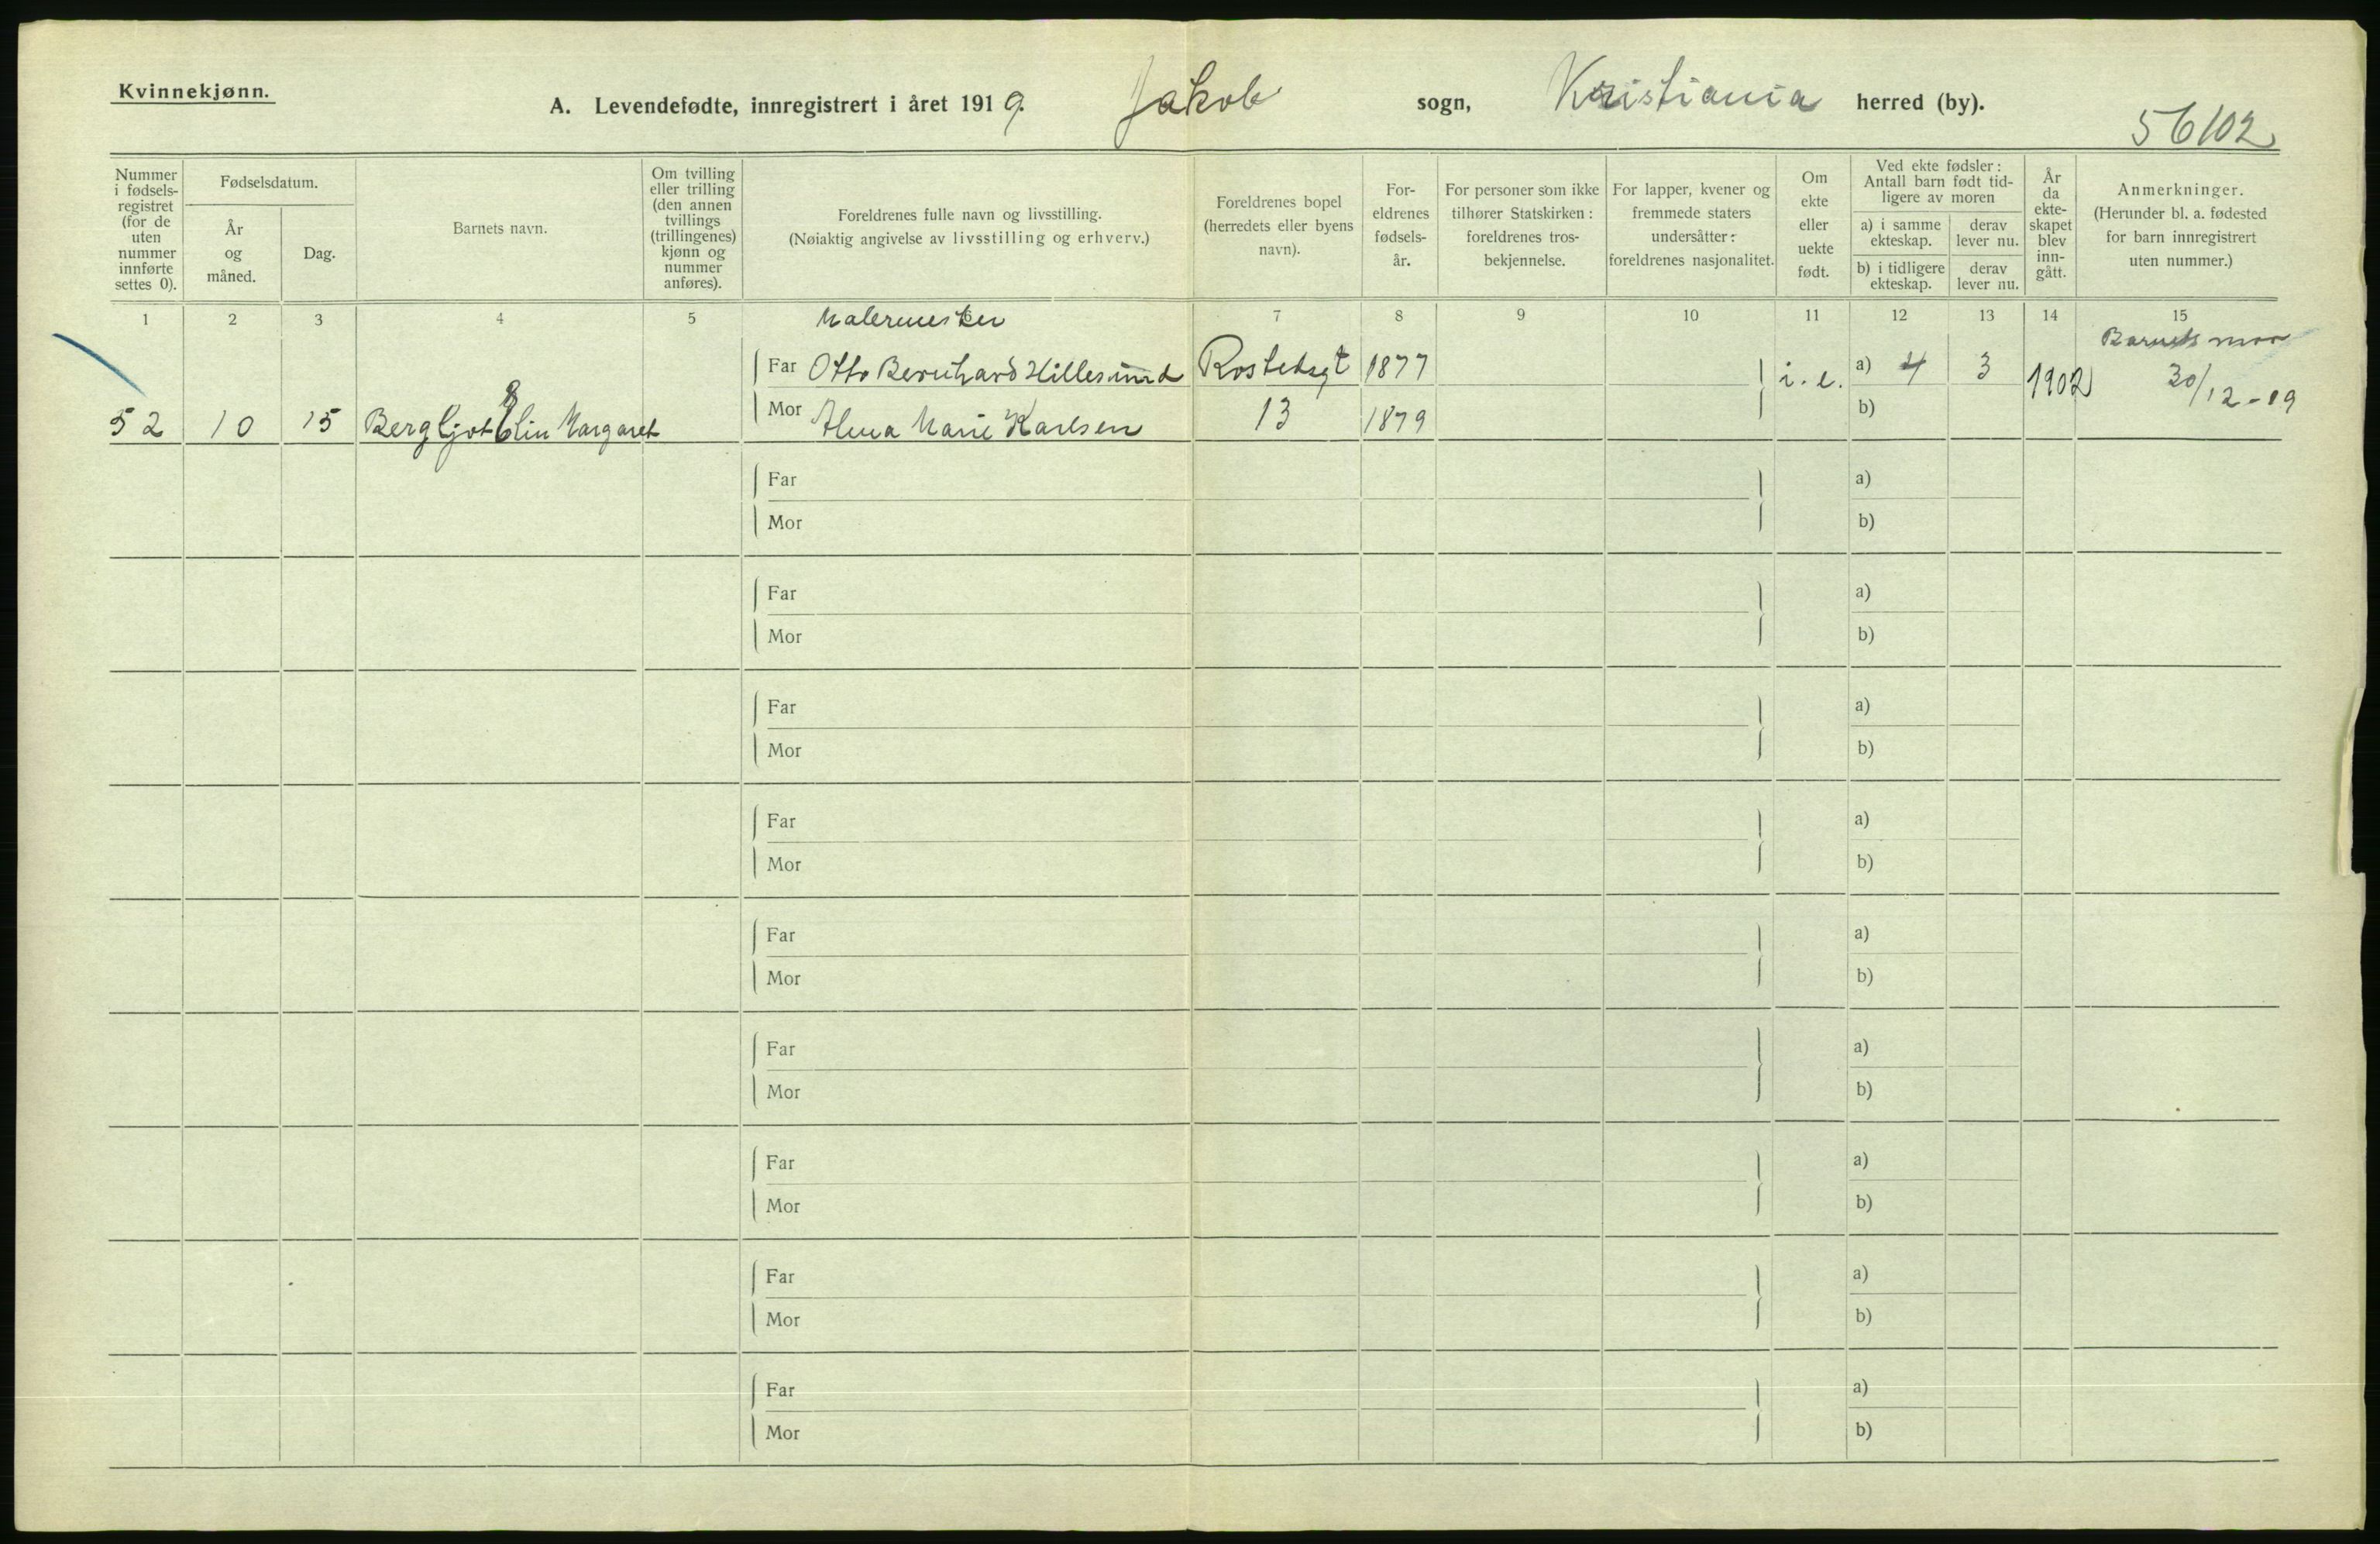 Kvinnekjønn.
A. Levendefødte, innregistrert i året 1919. Jakob sogn, Kristiania herred (by).
56102
Nummer i fødsels-registret (for de uten nummer innførte settes 0).
Fødselsdatum.
År og måned.
Dag.
Barnets navn.
Om tvilling eller trilling (den annen tvillings (trillingenes) kjønn og nummer anføres).
Foreldrenes fulle navn og livsstilling.
(Nøiaktig angivelse av livsstilling og erhverv.)
Foreldrenes bopel (herredets eller byens navn).
For-eldrenes fødsels-år.
For personer som ikke tilhører Statskirken: foreldrenes tros-bekjennelse.
For lapper, kvener og fremmede staters undersåtter: foreldrenes nasjonalitet.
Om ekte eller uekte født.
Ved ekte fødsler: Antall barn født tid-ligere av moren
a) i samme ekteskap.
derav lever nu.
b) i tidligere ekteskap.
derav lever nu.
År da ekte-skapet blev inn-gått.
Anmerkninger.
(Herunder bl. a. fødested for barn innregistrert uten nummer.)
1 2 3 4 5 6 7 8 9 10 11 12 13 14 15
Malermester
Barnets mor
Far Otto Bernhard Hillesund Rostedsgt 1877 i. e. a) 4 3 1902 30/12-19
52 10 15 Bergljot Elin Margaret Mor Alma Marie Karlsen 13 1879 b)
Far a)
Mor b)
Far a)
Mor b)
Far a)
Mor b)
Far a)
Mor b)
Far a)
Mor b)
Far a)
Mor b)
Far a)
Mor b)
Far a)
Mor b)
Far a)
Mor b)